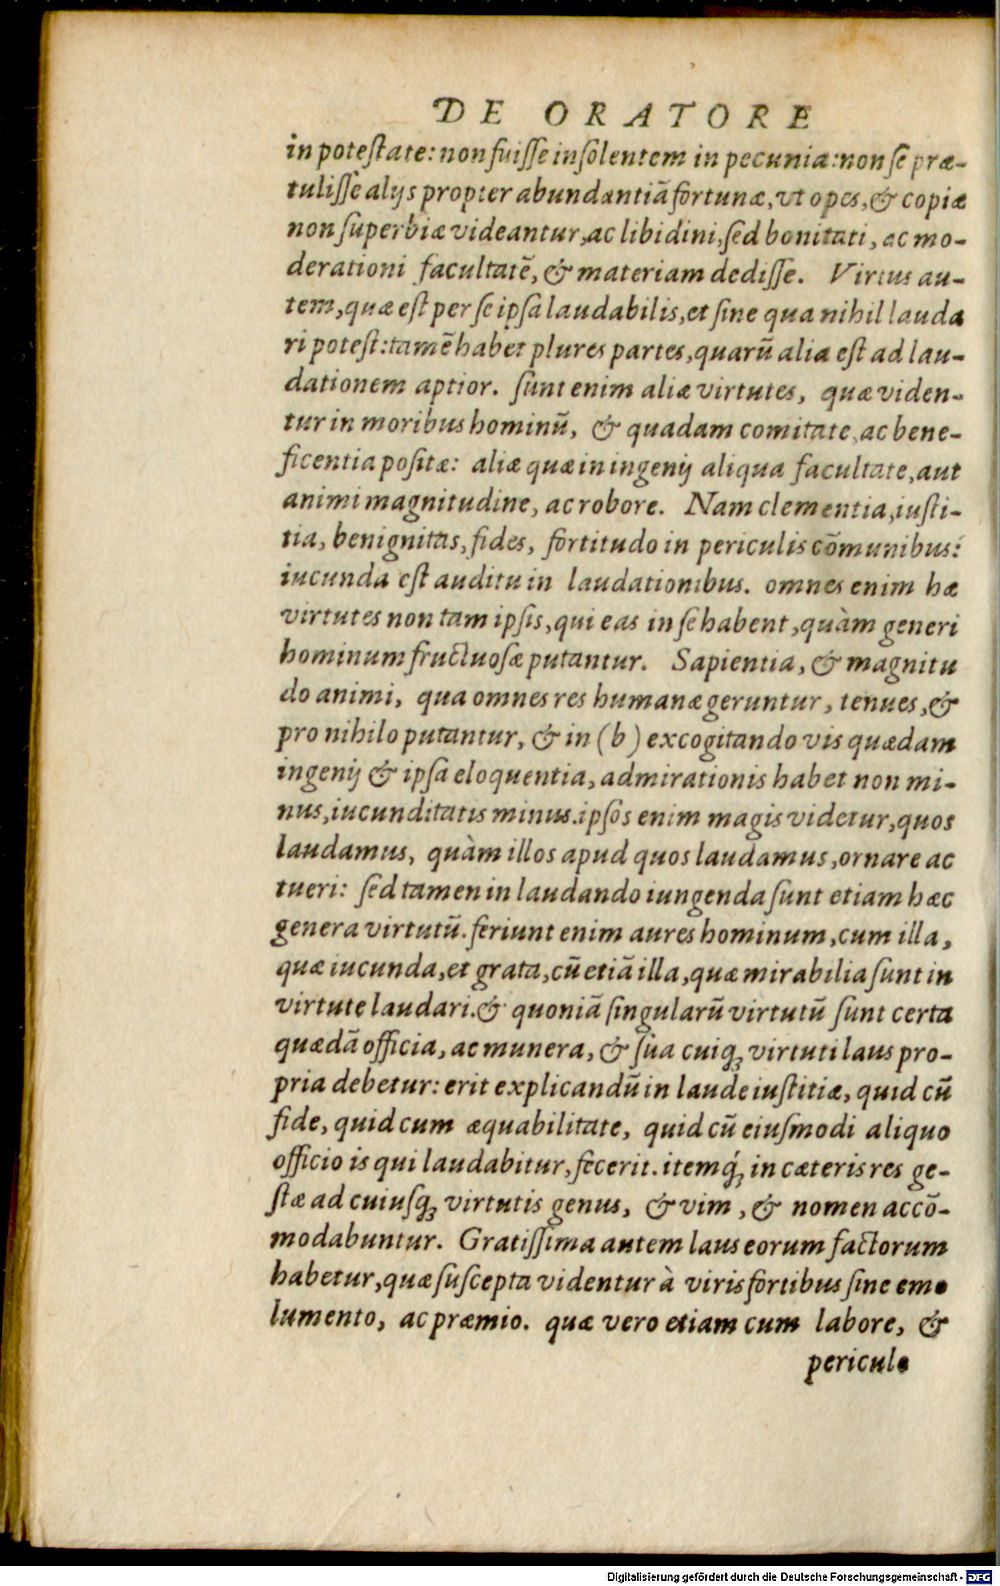 DE ORATORE
in poteſtate: non fuiſſe inſolentem in pecunia: non ſe præ-
tuliſſe alijs propter abundantiã fortunæ, vt opes, & copiæ
non ſuperbiæ videantur, ac libidini, ſed bonitati, ac mo-
derationi facultatẽ, & materiam dediſſe. Virtus au-
tem, quæ eſt per ſe ipſa laudabilis, et ſine qua nihil lauda
ri poteſt: tamẽ habet plures partes, quarũ alia eſt ad lau-
dationem aptior. ſunt enim aliæ virtutes, quæ viden-
tur in moribus hominũ, & quadam comitate, ac bene-
ficentia poſitæ: aliæ quæ in ingenij aliqua facultate, aut
animi magnitudine, ac robore. Nam clementia, iuſti-
tia, benignitas, fides, fortitudo in periculis cõmunibus:
iucunda eſt auditu in laudationibus. omnes enim hæ
virtutes non tam ipſis, qui eas in ſe habent, quàm generi
hominum fructuoſæ putantur. Sapientia, & magnitu
do animi, qua omnes res humanæ geruntur, tenues, &
pro nihilo putantur, & in (b) excogitando vis quædam
ingenij & ipſa eloquentia, admirationis habet non mi-
nus, iucunditatis minus. ipſos enim magis videtur, quos
laudamus, quàm illos apud quos laudamus, ornare ac
tueri: ſed tamen in laudando iungenda ſunt etiam hæc
genera virtutũ. feriunt enim aures hominum, cum illa,
quæ iucunda, et grata, cũ etiã illa, quæ mirabilia ſunt in
virtute laudari. & quoniã ſingularũ virtutũ ſunt certa
quædã officia, ac munera, & ſua cuiqꝫ virtuti laus pro-
pria debetur: erit explicandũ in laude iuſtitiæ, quid cũ
fide, quid cum æquabilitate, quid cũ eiuſmodi aliquo
officio is qui laudabitur, fecerit. itemqꝫ́ in cæteris res ge-
ſtæ ad cuiuſqꝫ virtutis genus, & vim, & nomen accõ-
modabuntur. Gratiſſima autem laus eorum factorum
habetur, quæ ſuſcepta videntur à viris fortibus ſine emo
lumento, ac præmio. quæ vero etiam cum labore, &
periculo
Digitalisierung gefördert durch die Deutsche Forschungsgemeinschaft - DFG